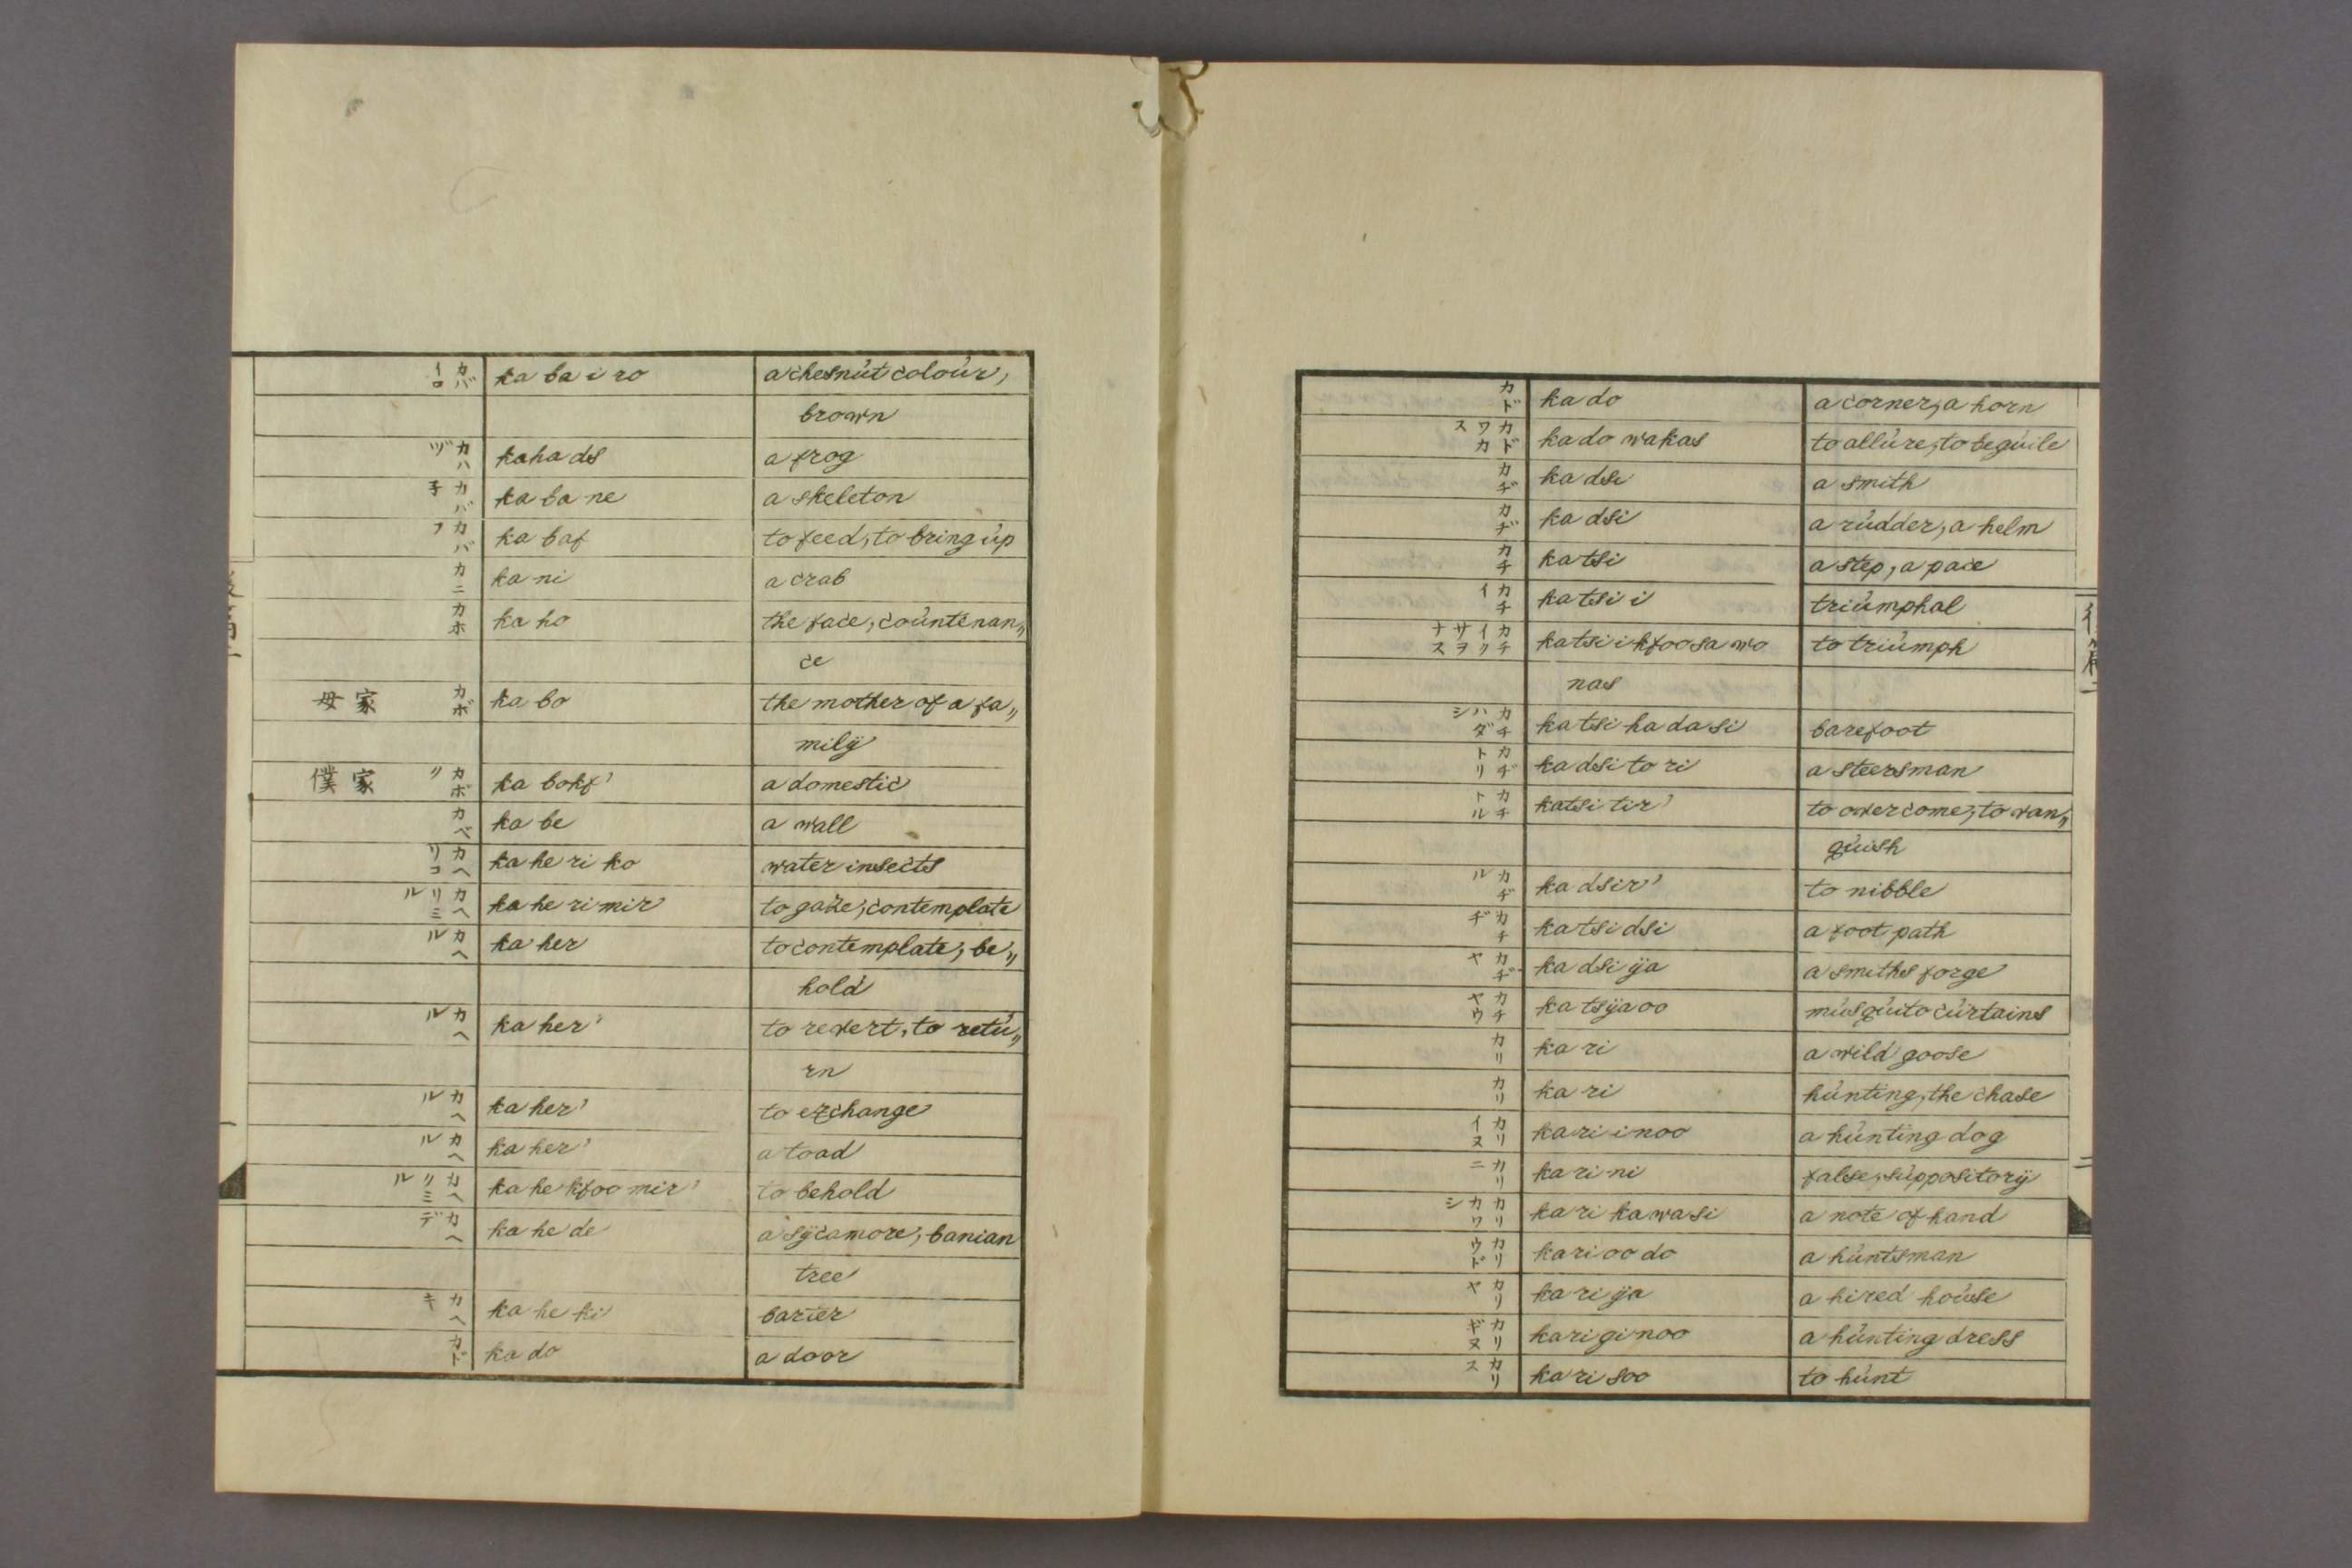 カバイロ ka ba i ro a chesnut colour,
brown
カハヅ kaha ds a frog
カバ子 ka ba ne a skeleton
カバフ ka baf to feed, to bring up
カニ ka ni a crab
カホ ka ho the face, countenan„
ce
家母 カボ ka bo the mother of a fa„
milÿ
家僕 カボク ka bokf' a domestic
カベ ka be a wall
カヘリコ ka he ri ko water insects
カヘリミル ka he ri mir to gaze, contemplate
カヘル ka her to contemplate, be„
hold
カヘル ka her' to revert, to retu„
rn
カヘル ka her' to exchange
カヘル ka her' a toad
カヘリミル ka he kfoo mir' to behold
カヘデ ka he de a sÿcamore, banian
tree
カヘキ ka he ki barier
カド ka do a door
カド ka do a corner, a horn
カドワカス ka do wakas to allure, to beguile
カヂ ka dsi a smith
カヂ ka dsi a rudder, a helm
カチ ka tsi a step, a pace
カチイ ka tsi i triumphal
カチイクサヲナス ka tsi i kfoo sa wo to triumph
nas
カチハダシ ka tsi ha da si barefoot
カヂトリ ka dsi to ri a steersman
カチトル katsi tir' to overcome, to van„
quish
カヂル ka dsir' to nibble
カチヂ ka tsi dsi a foot path
カヂヤ ka dsi ÿa a smiths forge
カチヤウ ka tsÿa oo musquito curtains
カリ ka ri a wild goose
カリ ka ri hunting, the chase
カリイヌ ka ri i noo a hunting dog
カリニ ka ri ni false, suppositorÿ
カリカワシ ka ri ka wa si a note of hand
カリウド ka ri oo do a huntsman
カリヤ ka ri ÿa a hired house
カリギヌ ka ri gi noo a hunting dress
カリス ka ri soo to hunt